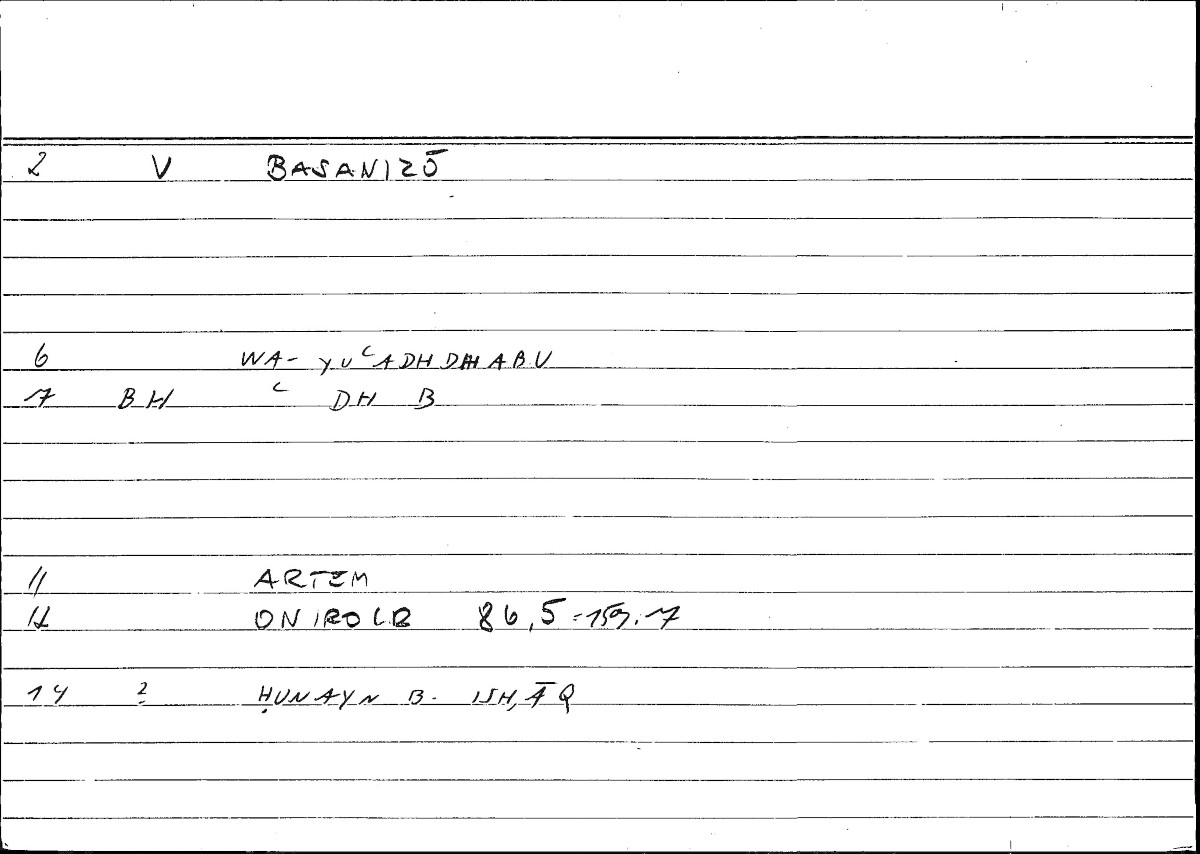 2 V BASANIZŌ
6 WA- YUʿADHDHABU
7 BH ʿ DH B
11 ARTEM
12 ONIROCR 86,5=159.17
14 2 ḤUNAYN B. ISḤĀQ